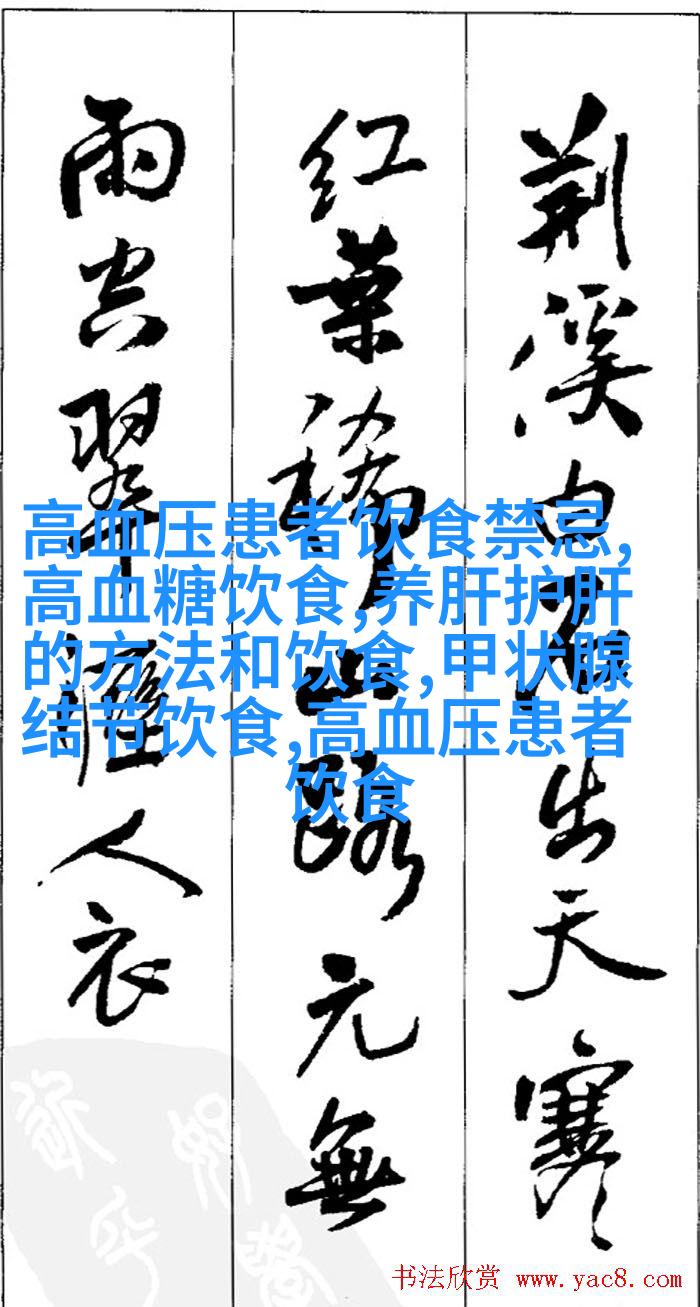 荆溪白石出天寒
红葉稀山路元無
雨空翠濕人衣
高血压患者饮食禁忌,
高血糖饮食,养肝护肝
的方法和饮食,甲状腺
结节饮食,高血压患者
饮食
书法欣赏 www.yac8.com